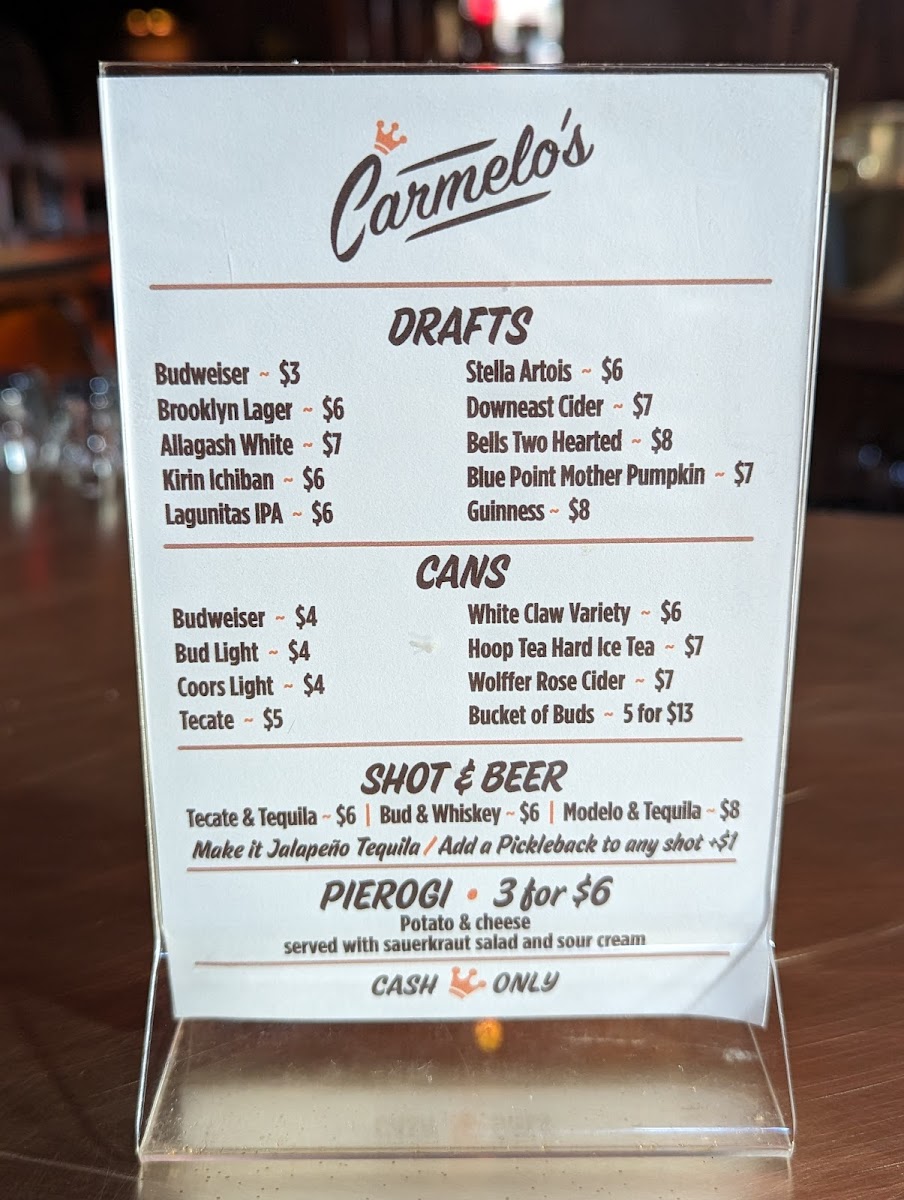 Carmelo's
DRAFTS
Budweiser ~ $3
Brooklyn Lager ~ $6
Allagash White ~ $7
Kirin Ichiban ~ $6
Lagunitas IPA ~ $6
Stella Artois ~ $6
Downeast Cider ~ $7
Bells Two Hearted ~ $8
Blue Point Mother Pumpkin ~ $7
Guinness ~ $8
CANS
Budweiser ~ $4
Bud Light ~ $4
Coors Light ~ $4
Tecate ~ $5
White Claw Variety ~ $6
Hoop Tea Hard Ice Tea ~ $7
Wolffer Rose Cider ~ $7
Bucket of Buds ~ 5 for $13
SHOT & BEER
Tecate & Tequila ~ $6 | Bud & Whiskey ~ $6 | Modelo & Tequila ~ $8
Make it Jalapeño Tequila / Add a Pickleback to any shot +$1
PIEROGI • 3 for $6
Potato & cheese
served with sauerkraut salad and sour cream
CASH ONLY